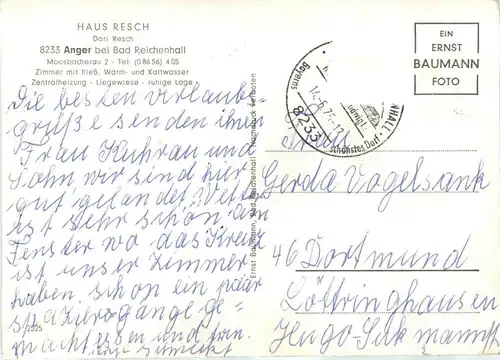 HAUS RESCH
Dori Resch
8233 Anger bei Bad Reichenhall
Moosbacherau 2 - Tel. (0 86 56) 4 05
Zimmer mit fließ. Warm- und Kaltwasser
Zentralheizung - Liegewiese - ruhige Lage
Die besten Urlaubs
grüße senden ihnen
Frau Kuhrau und
Sohn wir sind hier
gut gelandet Wetter
ist sehr schön am
Fenster wo das Kreuz
ist unser Zimmer
haben schon ein paar
spaziergänge ge-
macht essen und trin
schmeckt
2525
Ernst Baumann, Bad Reichenhall - Nachdruck verboten
Bayerns schönstes Dorf
8233
EIN
ERNST
BAUMANN
FOTO
Gerda Vogelsank
46 Dortmund
Löttringhausen
Hugo